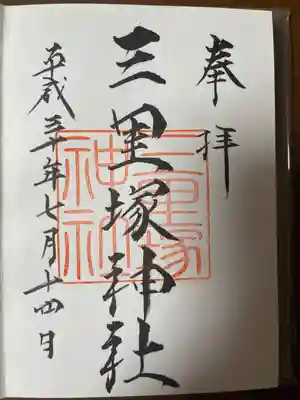 奉拝
三里塚神社
平成三十年七月十四日
三里塚神社